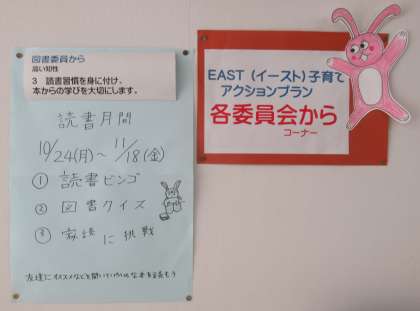 図書委員から
高い知性
3 読書習慣を身に付け、
本からの学びを大切にします。
読書月間
10/24(月)～11/18(金)
① 読書ビンゴ
② 図書クイズ
③ 家読に挑戦
EAST(イースト)子育て
アクションプラン
各委員会から
コーナー